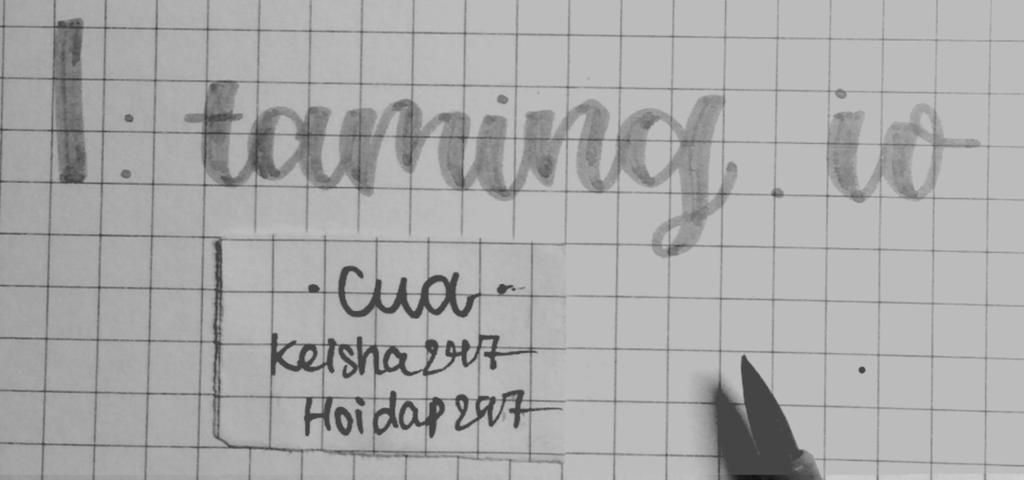 1: taming.io
• Cua •
Keisha247
Hoidap247